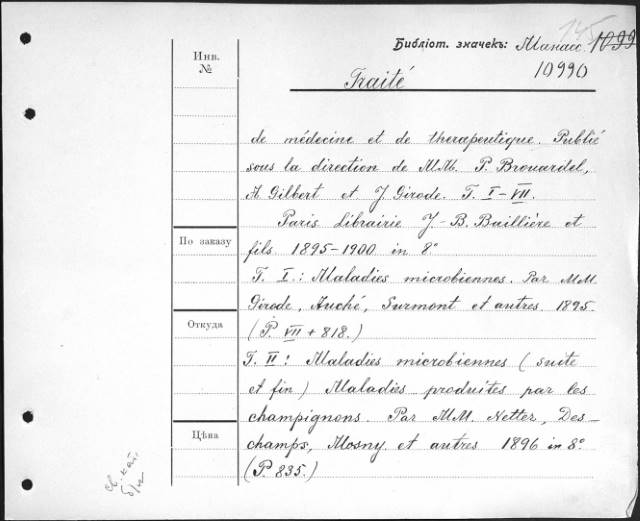 145
Библіот. значекъ: Манас. 1099
10990
Инв.
№
Traité
de médecine et de therapeutique. Publié
sous la direction de MM. P. Brouardel,
A. Gilbert et J. Girode. T. I–VII.
Paris. Librairie J.-B. Baillière et
fils 1895–1900 in 8°
По заказу
T. I.: Maladies microbiennes. Par MM.
Girode, Auché, Surmont et autres. 1895.
Откуда
(P. VII + 818.)
T. II: Maladies microbiennes (suite
et fin) Maladies produites par les
champignons. Par MM. Netter, Des-
Цѣна
champs, Mosny et autres 1896 in 8°.
(P. 835.)